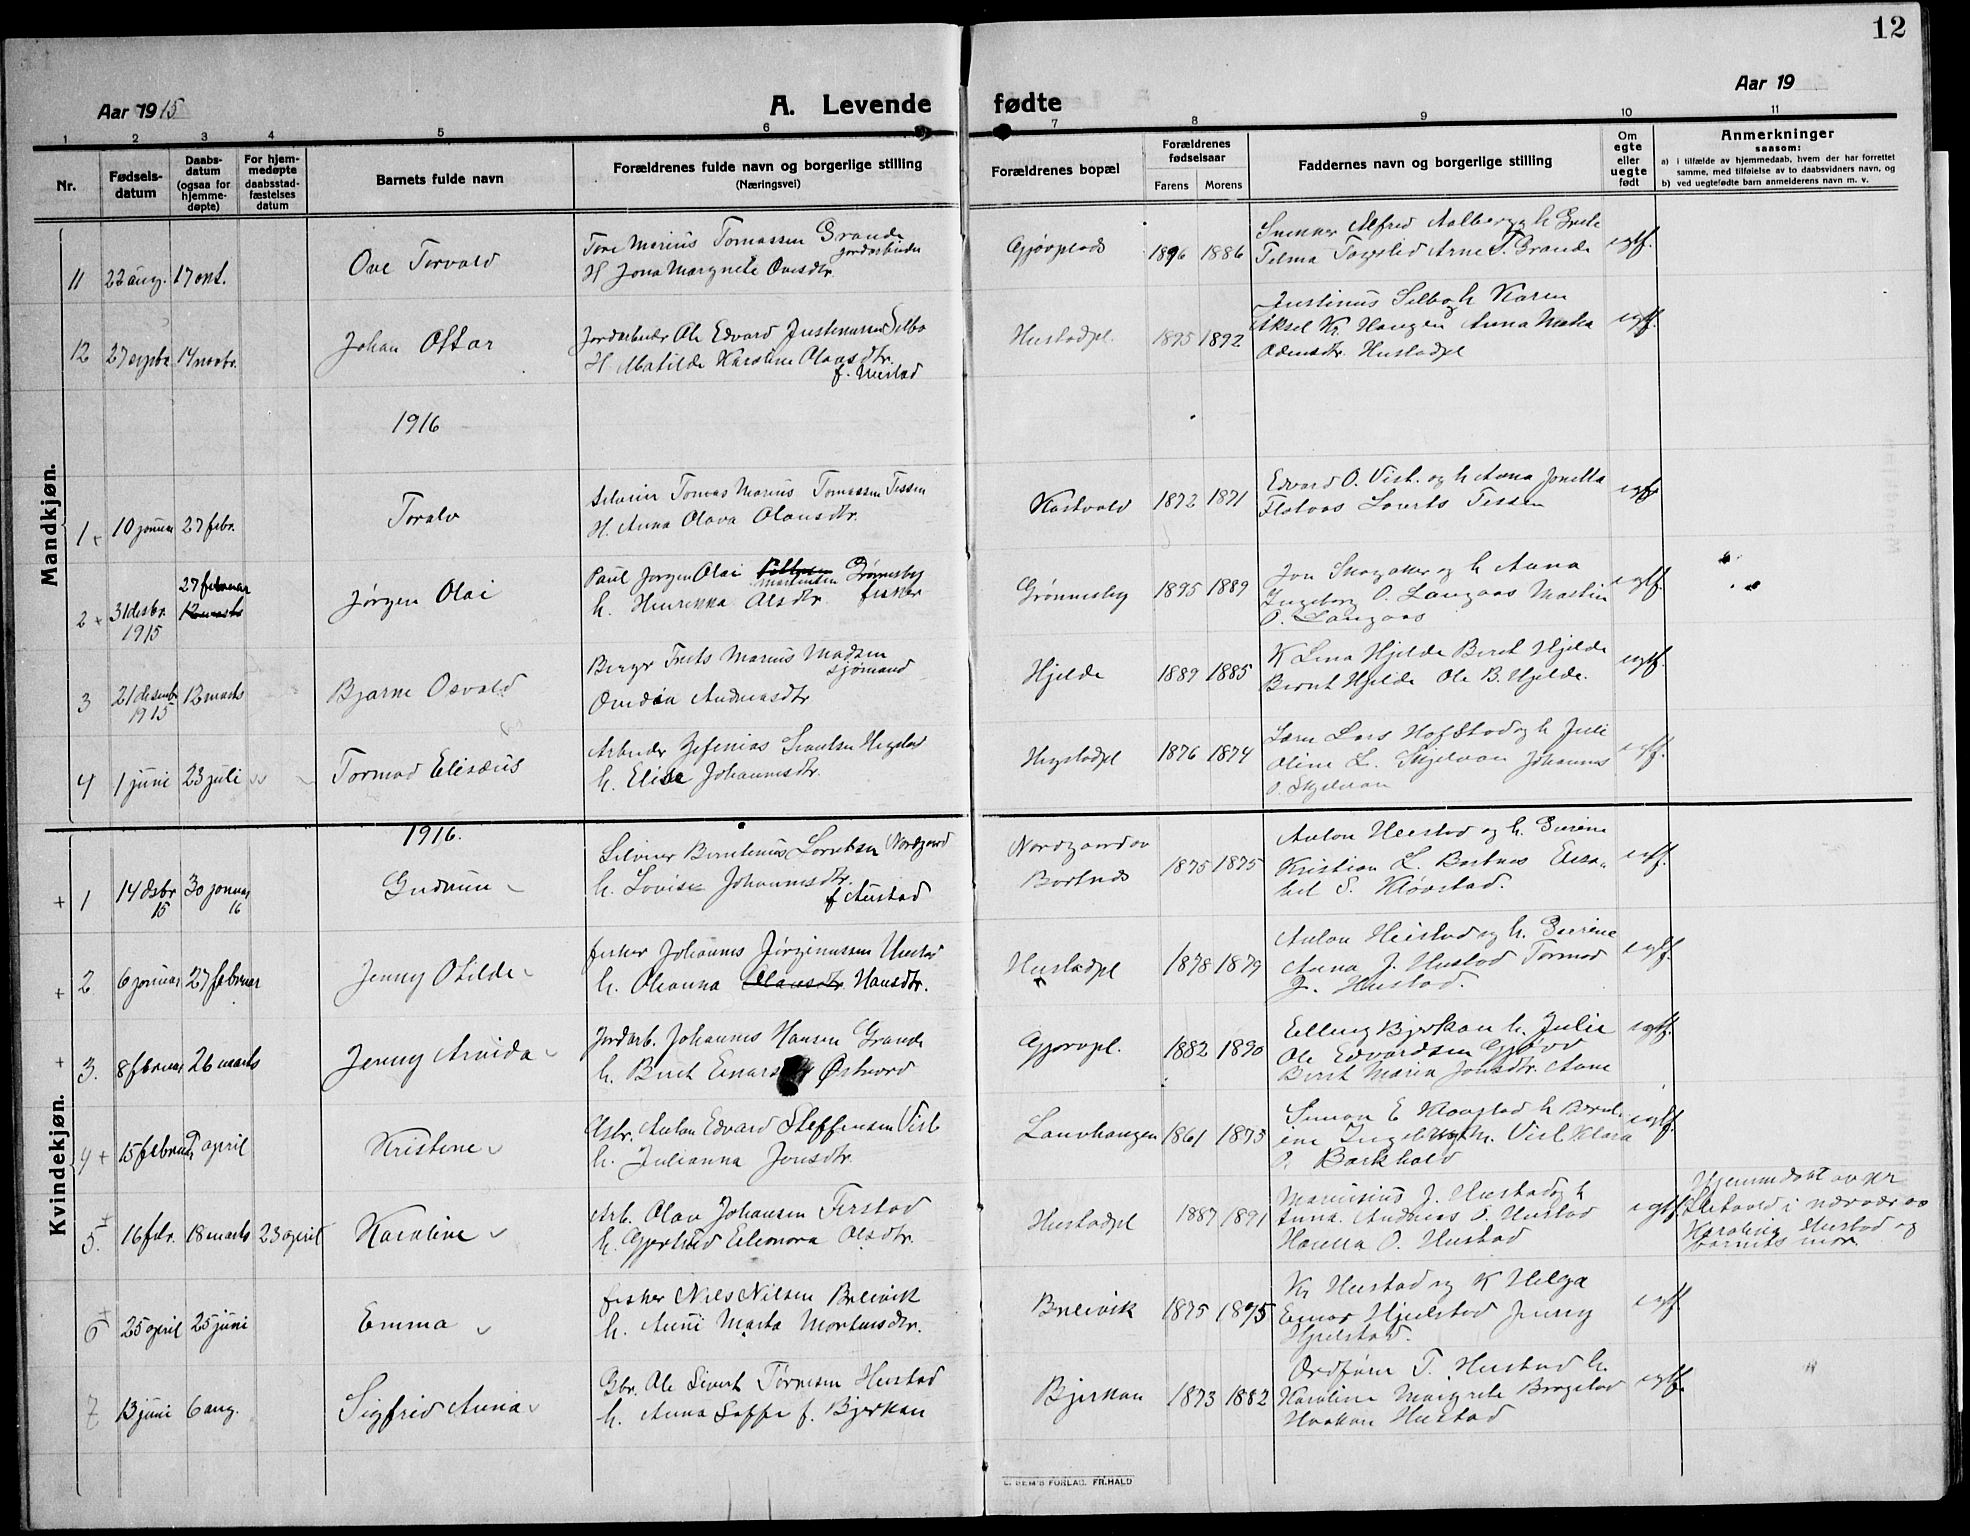 12
Aar 1915
A. Levende fødte
Aar 19
1 2 3 4 5 6 7 8 9 10 11
Nr.
Fødsels-
datum
Daabs-
datum
(ogsaa for
hjemme-
døpte)
For hjem-
medøpte
daabsstad-
fæstelses
datum
Barnets fulde navn
Forældrenes fulde navn og borgerlige stilling
(Næringsvei)
Forældrenes bopæl
Forældrenes
fødselsaar
Farens Morens
Faddernes navn og borgerlige stilling
Om
egte
eller
uegte
født
Anmerkninger
saasom:
a) i tilfælde av hjemmedaab, hvem der har forrettet
samme, med tilføielse av to daabsvidners navn, og
b) ved uegtefødte barn anmelderens navn m. v.
Mandkjøn.
11 22 aug. 17 okt. Ove Torvald
Tore Marius Tomassen Grande
jordarbeider
H Jona Margrete Ovesdtr.
Gjøvplads 1896 1886
Alfred Aalberg og h Grete
Telma Arne T. Grande
egtf.
12 27 14 novbr. Johan Ottar
Jordarbeider Ole Edvard Justinussen Selbo
H Matilde Karoline Olausdtr.
f. Hustad
Hustadpl. 1895 1892
Justinus Selbo og h Karen
Aksel Kr. Haugen Anna Marta
Odinsdtr. Hustadpl
egtf.
1916
1 10 januar 27 febr. Toralv
Tomas Marius Tomassen Tessem
H. Anna Olava Olausdtr.
Kastvold 1872 1871
Edvard O. Vist. og h Anna Jonetta
Flotaas Lourts Tessem
egtf
2 + 31 desbr.
1915
27 februar
12 marts
Jørgen Olai
Paul Jørgen Olai Martinsen Grønnesby
fisker
h. Henrikka Olsdtr
Grønnesby 1895 1889
Jon Skogaker og h Anna
Ingeborg O. Langaas Martin
O. Langaas
egtf.
3 21 desembr
1915
12 marts Bjarne Osvald
Berger Frits Marius Madsen
sjømand
Ovedia Andreasdtr
Hjelde 1889 1885
K Lina Hjelde Beret Hjelde
Bernt Hjelde Ole B. Hjelde.
egtf.
4 1 juni 23 juli Tormod Elisæus
Arbeider Zefanias Hegstad
h. Elise Johannesdtr.
Hegstadpl 1876 1874
Lars Hofstad og h Juli
Oline L. Skjelvan Johannes
O. Skjelvan
egtf.
Kvindekjøn.
1916.
+ 1 14 desbr
15
30 januar
16
Gudrun
Selveier Berntinus Lorntsen Nordgaard
h. Lovise Johannesdtr.
f Austad
Nordgaard av
Bartnes 1875 1875
Anton Heistad og h. Gurine
Kristian L. Bartnes Elisa-
bet S. Kløvstad.
egtf.
+ 2 6 januar 27 februar Jenny Otilde
fisker Johannes Jørginussen Hustad
h. Oleanna Olausdtr. Hansdtr.
Hustadpl 1878 1879
Anton Heistad og h. Gurine
Anna J. Hustad Tormod
J. Hustad.
egtf.
+ 3. 8 februar 26 marts Jenny Arvida
Jordarb. Johannes Hansen Grande
h. Berit Østnord
Gjørvpl. 1882 1890
Elling Bjerkan h. Julie
Ole Edvardsen Gjørv
Berit Maria Jonsdtr. Aune
egtf.
4 + 15 februar april Kristine
Gbr. Anton Edvard Steffensen Vist
h. Julianna Jonsdtr.
Lauvhaugen 1861 1873
Simon E Kløvstad h Bernt-
ine Ingeborg M. Vist Klara
O. Barkhald
egtf.
+ 5. 16 febr. 18 marts 23 april Karoline
Arb. Olav Johansen Tirstad
h. Gjertrud Eleonora Olsdtr.
Hustadpl 1887 1891
Marinius J. Hustad og h
Anna. Andreas O. Hustad
Haralda O. Hustad
egtf.
Hjemmedøpt av
i nærvær av
Karoline Hustad og
barnets mor.
+ 6 25 april 25 juni Emma
fisker Nils Nilsen Breivik
h. Anni Marta Mortensdtr.
Breivik 1875 1875
Kr Hustad og K Helga
Einar Hjulstad Jenny
Hjulstad.
egtf.
7 13 juni 6 aug. Sigfrid Anna
Gbr. Ole Sivert Tørrisen Hustad
h. Anna Soffe f. Bjerkan
Bjerkan 1873 1882
Ordfører T. Hustad h.
Karoline Margrete Bragstad
Haakon Hustad
egtf.
FORLAG. FR. HALD